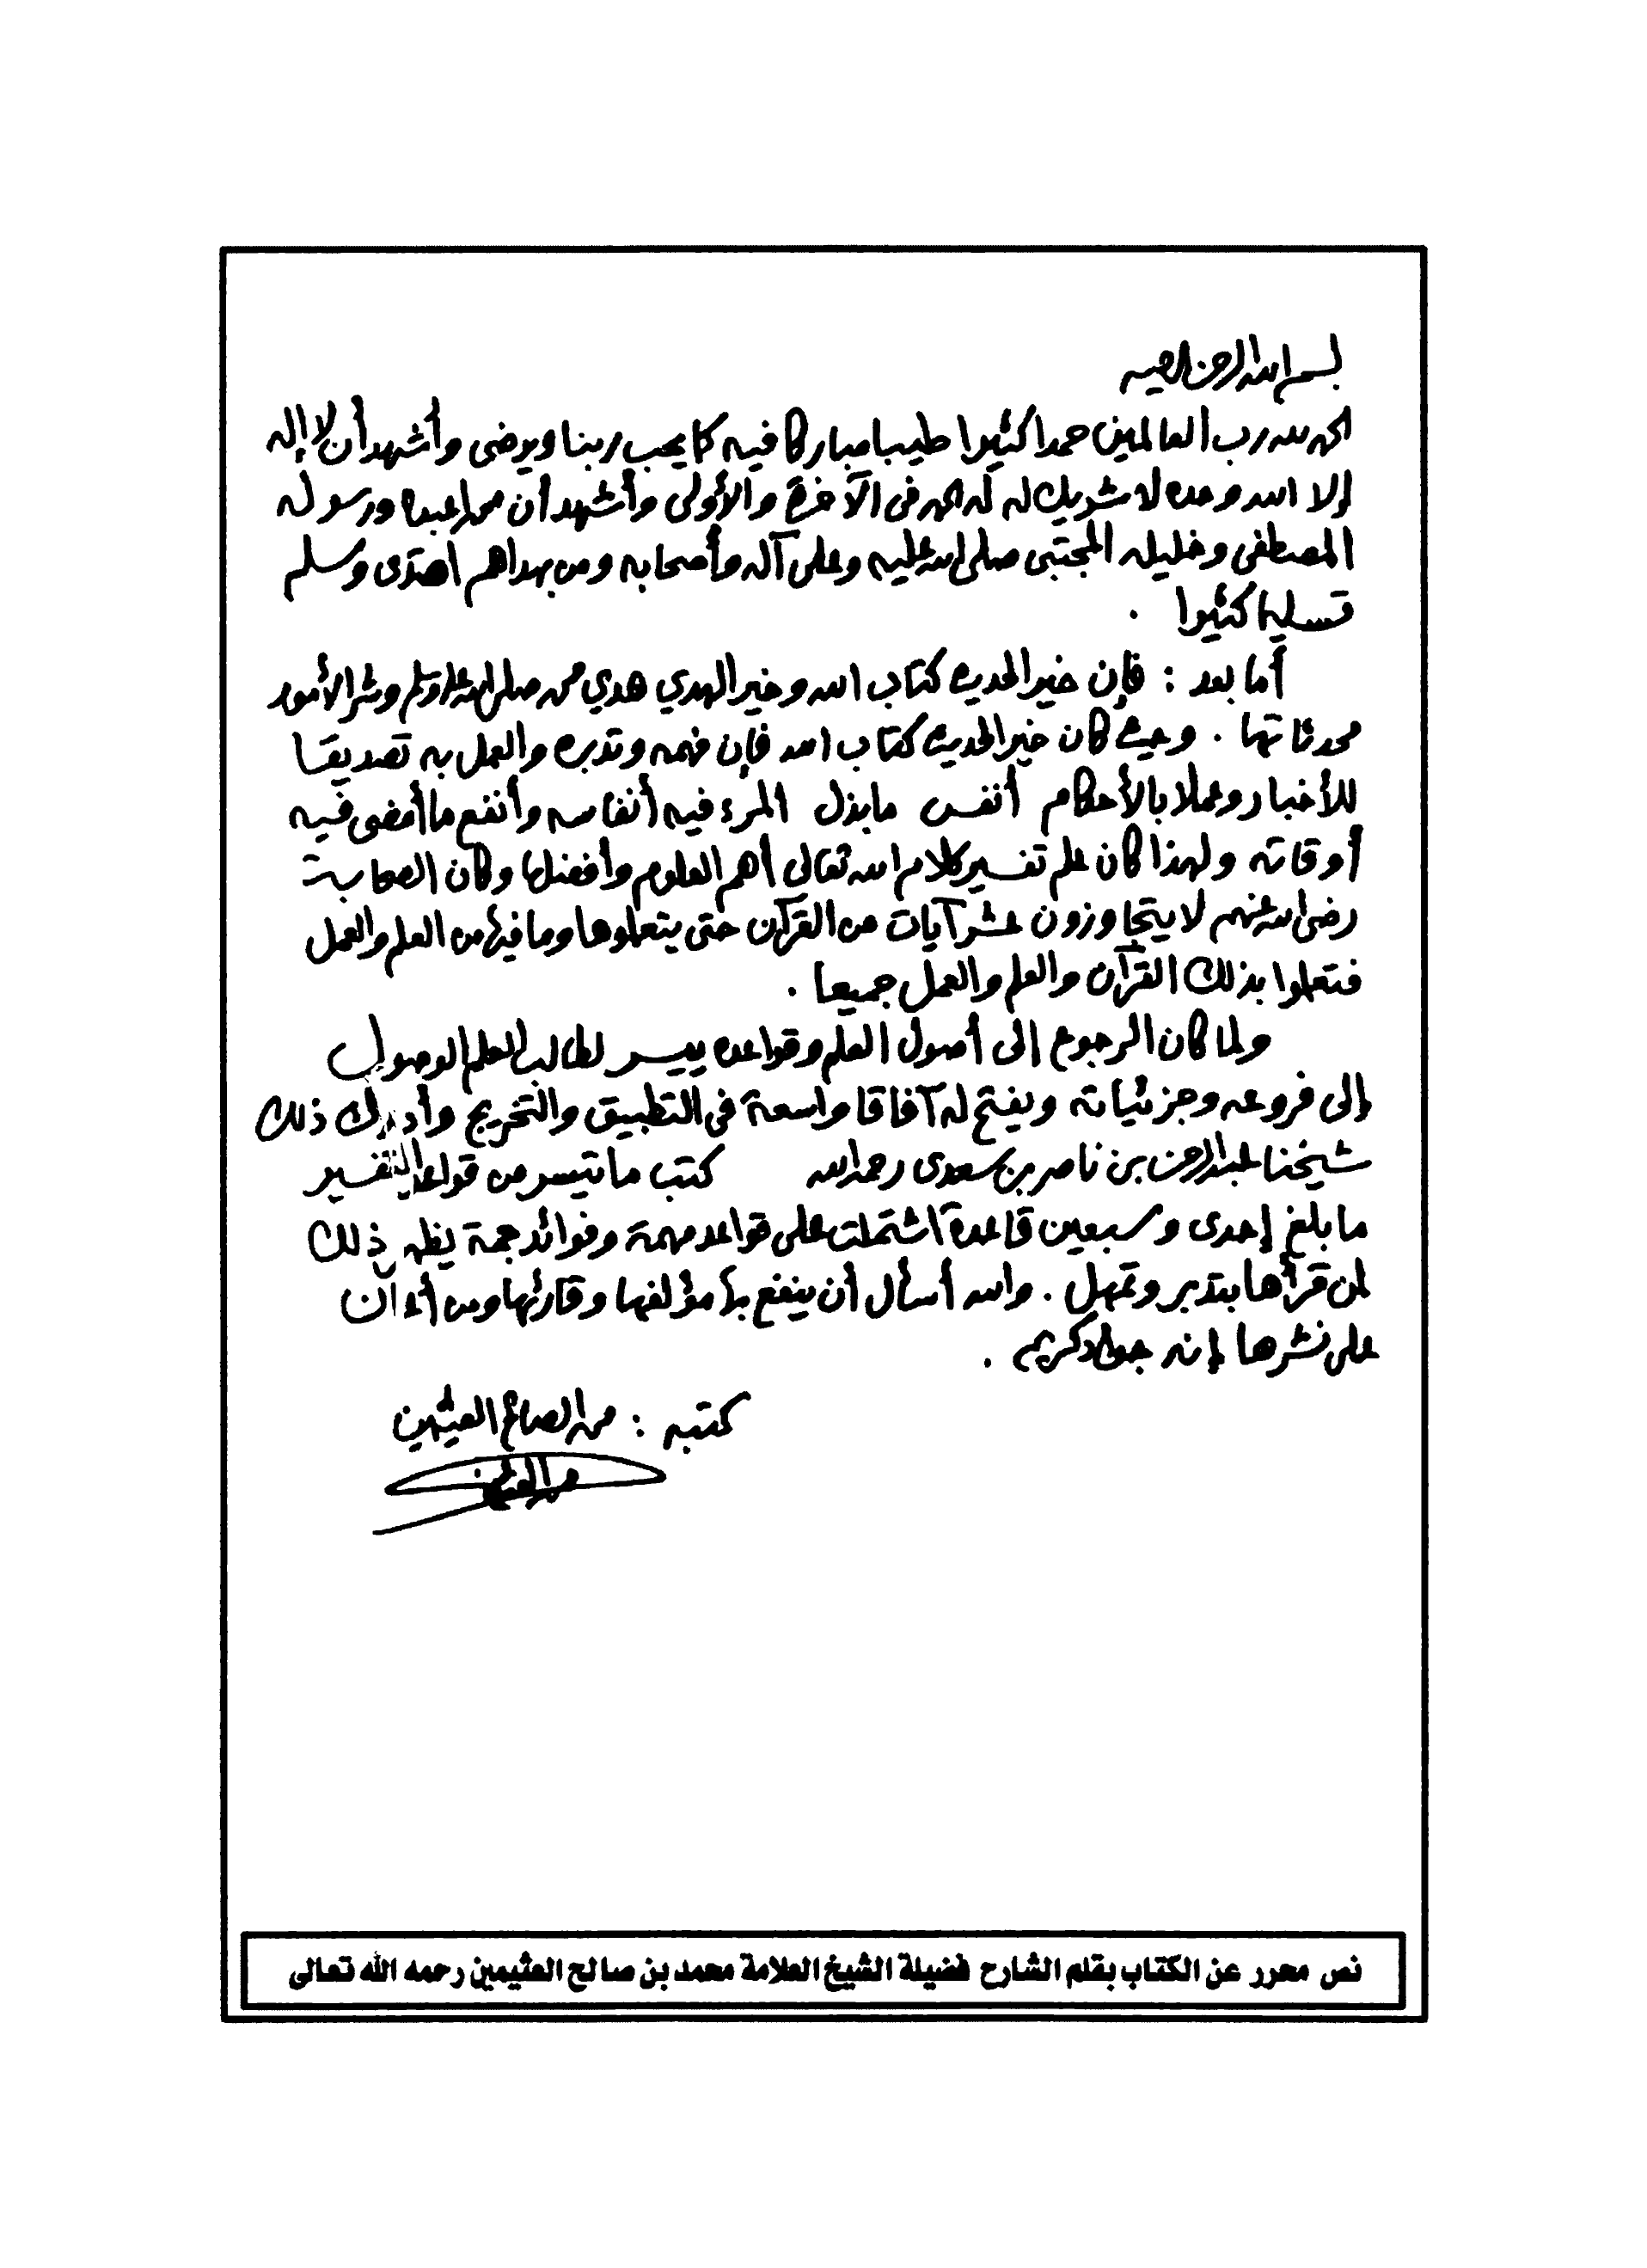 بسم الله الرحمن الرحيم
الحمد لله رب العالمين حمدا كثيرا طيبا مباركا فيه كما يحب ربنا ويرضى وأشهد أن لا إله
إلا الله وحده لا شريك له له الحمد في الآخرة والأولى وأشهد أن محمدا عبده ورسوله
المصطفى وخليله المجتبى صلى الله عليه وعلى آله وأصحابه ومن بهداهم اهتدى وسلم
تسليما كثيرا .
أما بعد : فإن خير الحديث كتاب الله وخير الهدي هدي محمد صلى الله عليه وسلم وشر الأمور
محدثاتها . وحيث كان خير الحديث كتاب الله فإن فهمه وتدبره والعمل به تصديقا
للأخبار وعملا بالأحكام أنفس ما بذل المرء فيه أنفاسه وأنفع ما أمضى فيه
أوقاته ولهذا كان علم تفسير كلام الله تعالى أهم العلوم وأفضلها وكان الصحابة
رضي الله عنهم لا يتجاوزون عشر آيات من القرآن حتى يتعلموها وما فيها من العلم والعمل
فتعلموا بذلك القرآن والعلم والعمل جميعا .
ولما كان الرجوع إلى أصول العلم وقواعده ييسر لطالب العلم الوصول
إلى فروعه وجزئياته ويفتح له آفاقا واسعة في التطبيق والتخريج وأدرك ذلك
شيخنا عبد الرحمن بن ناصر بن سعدي رحمه الله كتب ما تيسر من قواعد التفسير
ما بلغ إحدى وسبعين قاعدة اشتملت على قواعد مهمة وفوائد جمة يظهر ذلك
لمن قرأها بتدبر وتمهل . والله أسأل أن ينفع بها مؤلفها وقارئها ومن أعان
على نشرها إنه جواد كريم .
كتبه : محمد الصالح العثيمين
محمد العثيمين
نص محرر عن الكتاب بقلم الشارح فضيلة الشيخ العلامة محمد بن صالح العثيمين رحمه الله تعالى